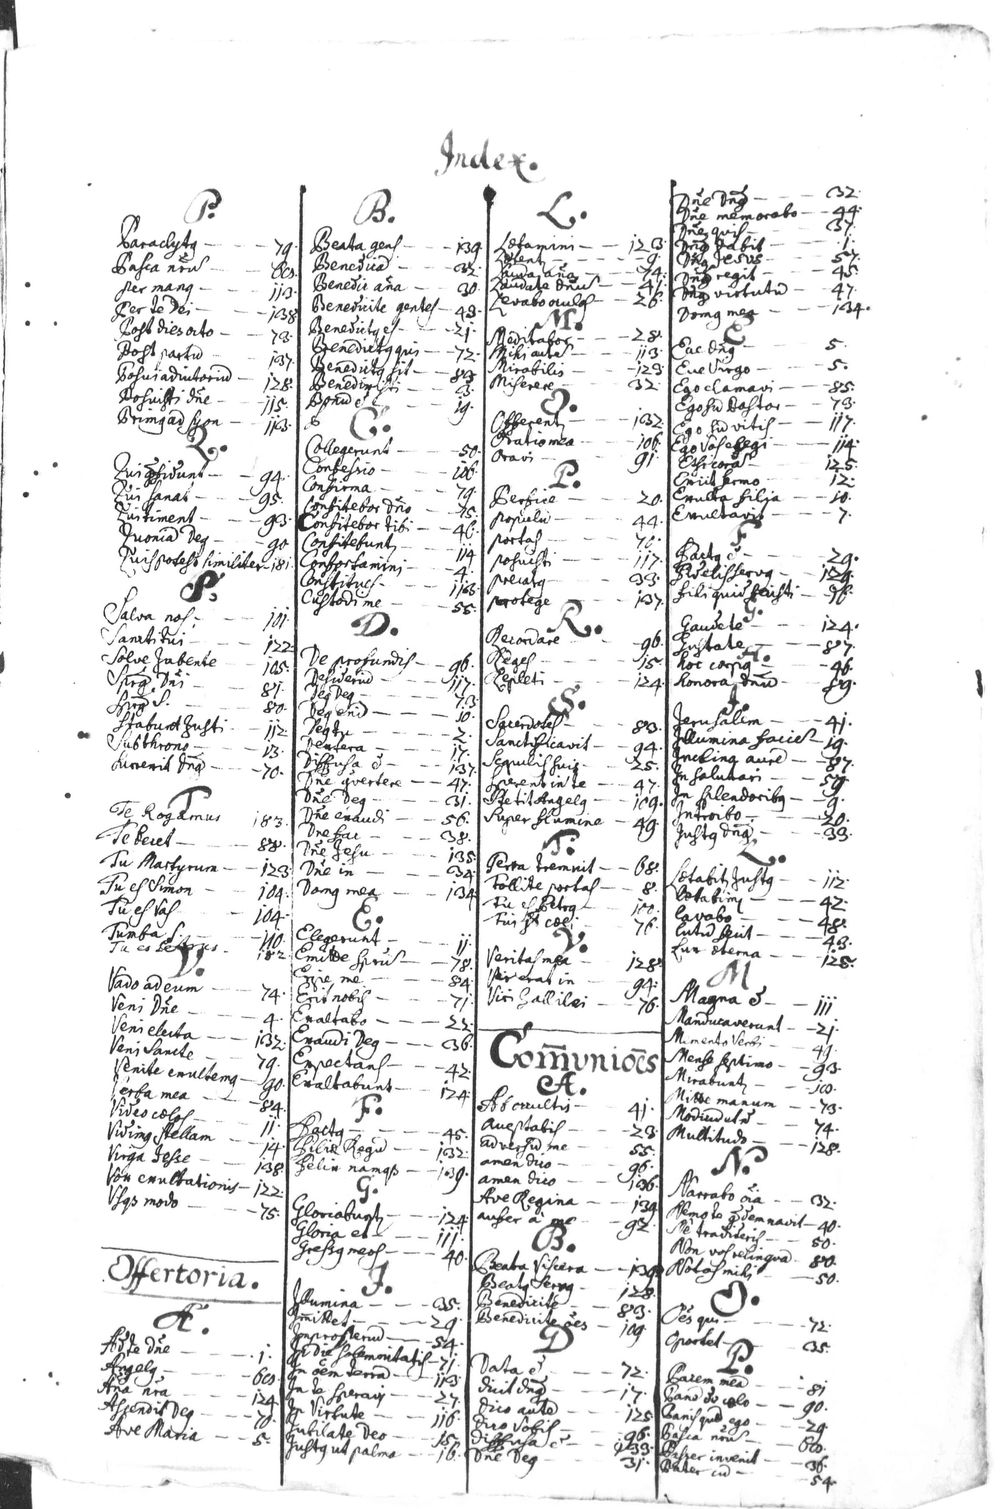 Index.
P.
Paraclytq — 79
Pasca nrūs — 60
per mang — 113
Per te Dei — 138
Post dies octo — 73
Post partū — 137
Posui adiutoriū — 128
Posuisti Dñe — 115
Primg ad Syon — 113
Q.
Qui cōfidunt — 94
Qui sanat — 95
Qui timent — 93
Quoniā Deg — 90
Quis potest similiter — 181
S.
Salva nos — 101
Sancti tui — 122
Solve Jubente — 105
Spirg Dñi — 81
Spirg S. — 80
Stabunt Justi — 112
Sub throno — 13
Surrexit Dñg — 70
T
Te Rogamus — 183
Te Decet — 88
Tu Martyrum — 123
Tu es Simon — 104
Tu es Vas — 104
Tumba S. — 110
Tu es Petrus — 182
V.
Vado ad eum — 74
Veni Dñe — 4
Veni electa — 132
Veni Sancte — 79
Venite exultemg — 90
Verba mea — 84
Video cœlos — 11
Vidimg stellam — 14
Virga Jesse — 138
Vox exultationis — 122
Vsqs modo — 75
Offertoria.
A.
Ad te dñe — 1
Angelg — 60
Aña nra — 124
Ascendit Deg — 76
Ave Maria — 5
B.
Beata gens — 139
Benedicā — 32
Benedic aña — 30
Benedicite gentes — 43
Benedictg es — 21
Benedictg qui — 72
Benedictg sit — 83
Benedixisti — 3
Bonū ē — 19
C.
Collegerunt — 50
Confessio — 116
Confirma — 79
Confitebor Dño — 75
Confitebor tibi — 46
Confitebunt — 114
Confortamini — 4
Constitues — 116
Custodi me — 55
D.
De profundis — 96
Desideriū — 117
Deg Deg — 73
Deg enī — 10
Deg tu — 2
Dextera — 17
Diffusa ē — 137
Dñe cōvertere — 47
Dñe Deg — 31
Dñe exaudi — 56
Dñe fac — 38
Dñe Jesu — 135
Dñe in — 34
Domg mea — 134
E.
Elegerunt — 11
Emitte spiritū — 78
Eripe me — 54
Erit nobis — 71
Exaltabo — 23
Exaudi Deg — 36
Expectans — 42
Exaltabunt — 124
F.
Factg — 45
Filiæ Regū — 132
Felix namqs — 139
G.
Gloriabunt — 124
Gloria et — 111
Gressg meos — 40
I.
Illumina — 35
Imittet — 29
Improperiū — 54
In die solemnitatis — 71
In oēm terrā — 113
In te speravi — 27
In Virtute — 116
Jubilate Deo — 15
Justg ut palma — 16
L.
Lætamini — 123
Lætent — 9
Lauda aña — 74
Laudate dñus — 41
Levabo oculos — 26
M.
Meditabor — 28
Mihi autē — 113
Mirabilis — 123
Miserere — 32
O.
Offerent — 132
Oratio mea — 106
Oravi — 91
P.
Perfice — 20
populū — 44
portas — 70
posuisti — 117
precatg — 33
protege — 137
R.
Recordare — 96
Reges — 15
Repleti — 124
S.
Sacerdotes — 83
Sanctificavit — 94
Sepulis huic — 25
Sperent in te — 47
Stetit Angelg — 109
Super flumine — 49
T.
Terra tremuit — 68
Tollite portas — 8
Tu es Petrg — 100
Tui st cœli — 76
V.
Veritas mea — 128
Vir erat in — 94
Viri Gallilæi — 76
Com̄vnioēs
A.
Ab occultis — 41
avertabis — 23
adversū me — 55
amen dico — 96
amen dico — 136
Ave Regina — 139
aufer à me — 92
B.
Beata Viscera — 139
Beatg Servg — 128
Benedicite — 83
Benedicite ōes — 109
D
Data ē — 72
dicit dñg — 17
dico autē — 125
dico vobis — 96
diffusa ē — 133
Dñe Deg — 31
Dñe Dñg — 32
Dñe memorabo — 44
Dñe quis — 37
Dñg Dabit — 1
Dñg Jesus — 57
Dñg regit — 45
Dñg virtutū — 47
Domg mea — 134
E
Ecce Dñg — 5
Ecce Virgo — 5
Ego clamavi — 85
Ego sū Pastor — 73
Ego sū vitis — 117
Ego vos elegi — 114
Et si corā — 125
Exiit sermo — 12
Exulta filia — 10
Exultavit — 7
F
Factg ē — 29
Fidelis servg — 129
fili quid fecisti — 16
G.
Gaudete — 124
Gustate — 87
H.
Hoc corpg — 46
Honora dñū — 89
I.
Jerusalem — 41
Illumina faciē — 19
Inclina aurē — 87
In salutari — 59
In splendoribg — 9
Introibo — 20
Justg dñg — 33
L.
Lætabit Justg — 112
Lætabimg — 42
lavabo — 48
lutū fecit — 43
Lux æterna — 128
M
Magna ē — 111
Manducaverunt — 21
Memento Verbi — 49
Mense septimo — 93
Mirabunt — 10
Mitte manum — 73
Modicū — 74
Multitudo — 128
N.
Narrabo ōia — 32
Nemo te cōdemnavit — 40
Ne tradideris — 50
Non vos relinquā — 80
Notas mihi — 50
O.
Oēs qui — 72
Oportet — 35
P.
Pacem meā — 81
Panē de cœlo — 90
Panis quē ego — 29
Pasca nrūs — 60
Passer invenit — 36
Pater cū — 54